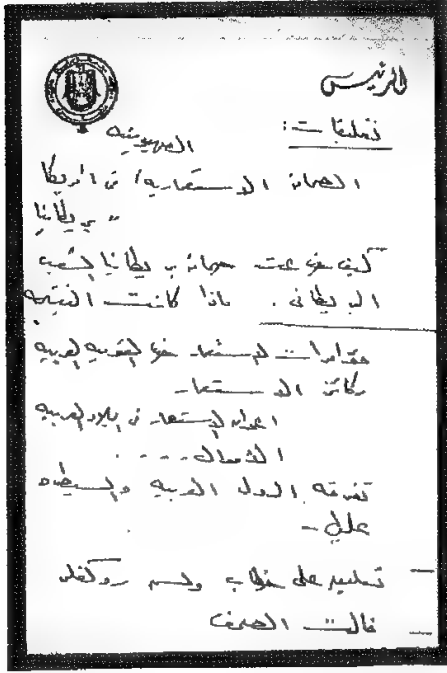 الرئيس
تعليقات:
الصهيونيه
الصحافه الاستعماريه / فى امريكا
" بريطانيا
كيف خدعت صحافة بريطانيا الشعب
البريطانى . ماذا كانت النتيجه
مؤامرات الاستعمار ضد القوميه العربيه
ركائز الاستعمار
اعوان الاستعمار فى البلاد العربيه
الاموال ....
تفرقه الدول العربيه والسيطره
على -
تعليق على خطاب
قالت الصحف